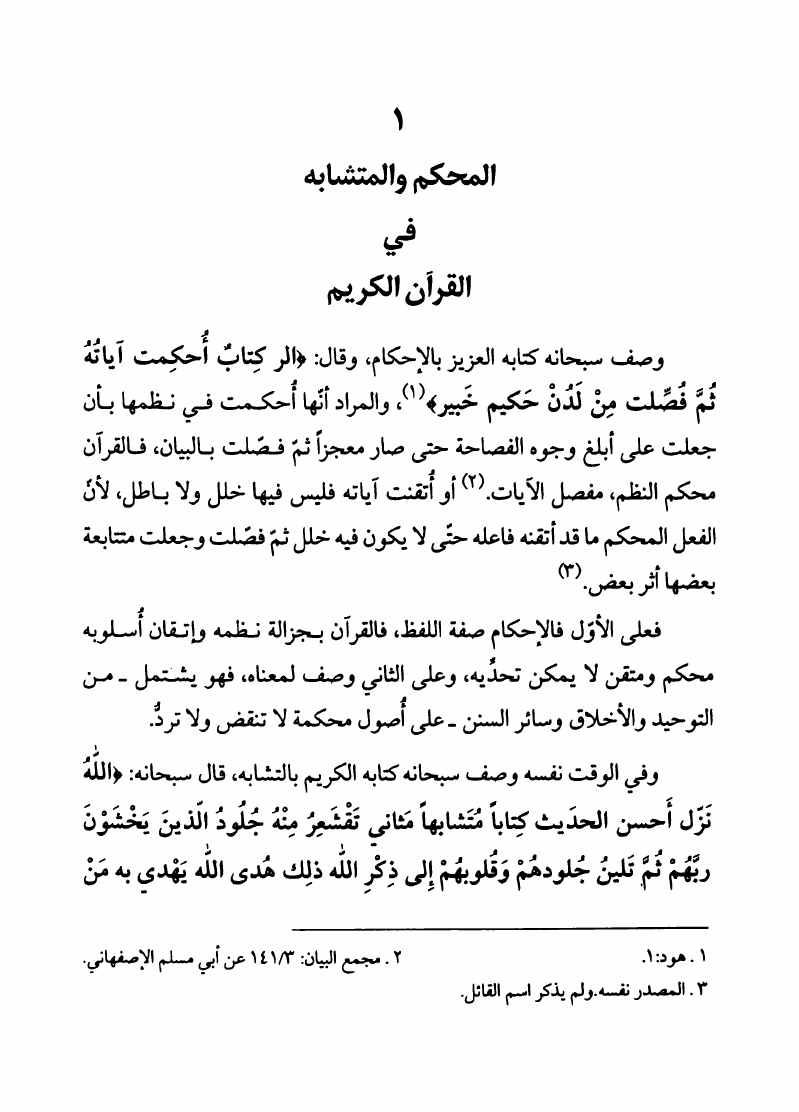 ١
المحكم والمتشابه
في
القرآن الكريم
وصف سبحانه كتابه العزيز بالإحكام، وقال: ﴿الر كِتابٌ أُحكِمت آياتُهُ
ثُمَّ فُصِّلت مِنْ لَدُنْ حَكيم خَبير﴾(١)، والمراد أنّها أُحكمت في نظمها بأن
جعلت على أبلغ وجوه الفصاحة حتى صار معجزاً ثمّ فصّلت بالبيان، فالقرآن
محكم النظم، مفصل الآيات.(٢) أو أُتقنت آياته فليس فيها خلل ولا باطل، لأنّ
الفعل المحكم ما قد أتقنه فاعله حتّى لا يكون فيه خلل ثمّ فصّلت وجعلت متتابعة
بعضها أثر بعض.(٣)
فعلى الأوّل فالإحكام صفة اللفظ، فالقرآن بجزالة نظمه وإتقان أُسلوبه
محكم ومتقن لا يمكن تحدّيه، وعلى الثاني وصف لمعناه، فهو يشتمل ـ من
التوحيد والأخلاق وسائر السنن ـ على أُصول محكمة لا تنقض ولا تردُّ.
وفي الوقت نفسه وصف سبحانه كتابه الكريم بالتشابه، قال سبحانه: ﴿اللّهُ
نَزّل أَحسن الحدَيث كِتاباً مُتَشابهاً مَثاني تَقْشَعِرُ مِنْهُ جُلُودُ الّذينَ يَخْشَوْنَ
ربَّهُمْ ثُمَّ تَلينُ جُلودهُمْ وَقُلوبهُمْ إِلى ذِكْرِ اللّه ذلِك هُدى اللّه يَهْدي به مَنْ
١ . هود:١.
٢ . مجمع البيان: ١٤١/٣ عن أبي مسلم الإصفهاني.
٣ . المصدر نفسه.ولم يذكر اسم القائل.